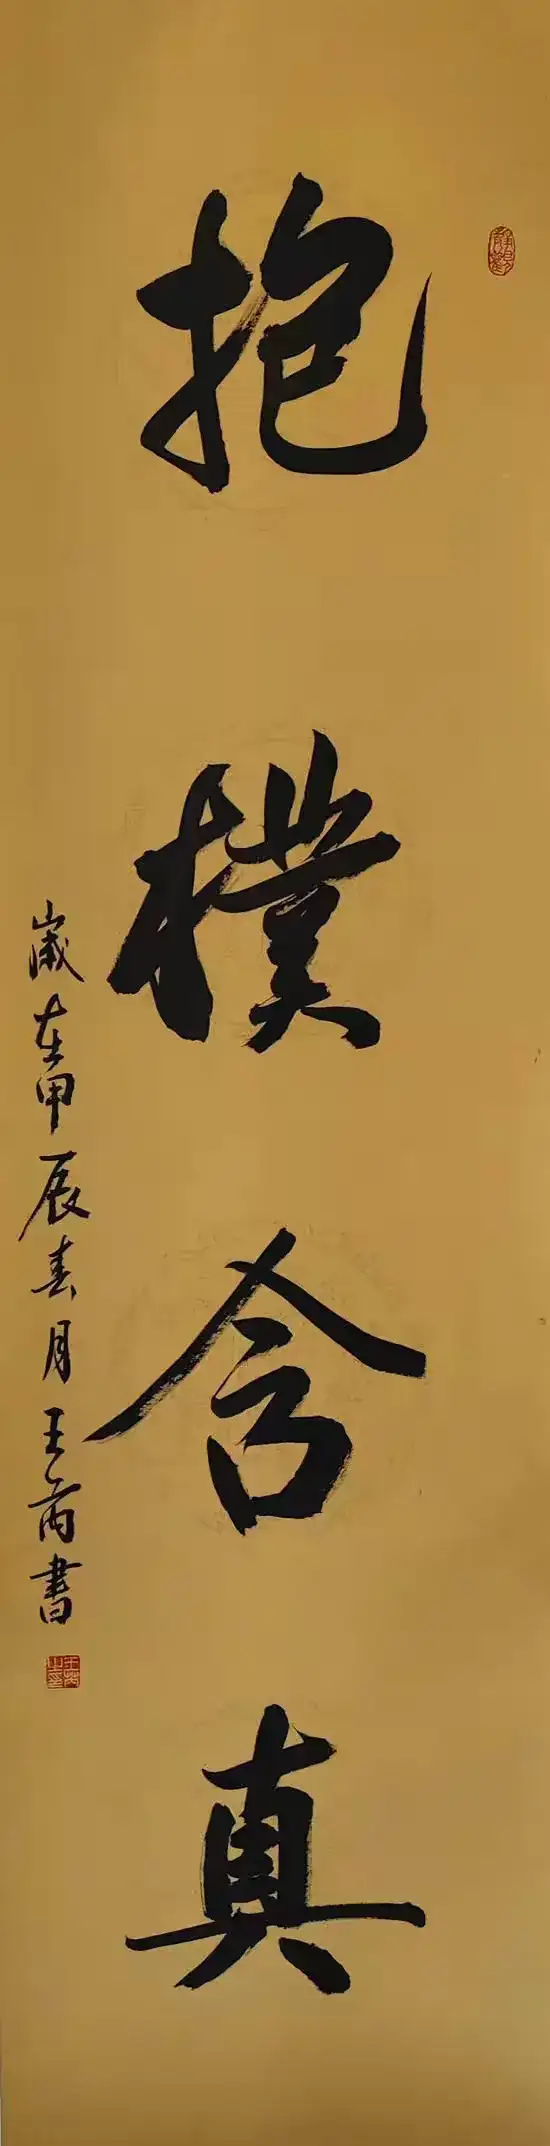 抱樸含真
歲在甲辰春月王芮書